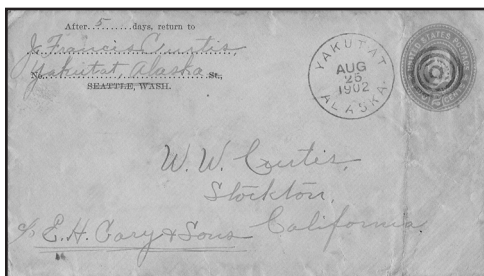 After 5 days, return to
J. Francis Curtis,
No. Yakutat, Alaska St.,
SEATTLE, WASH.
YAKUTAT
AUG
26
1902
ALASKA.
UNITED STATES POSTAGE
W. W. Curtis,
Stockton,
California
c/o E. H. Cary & Sons